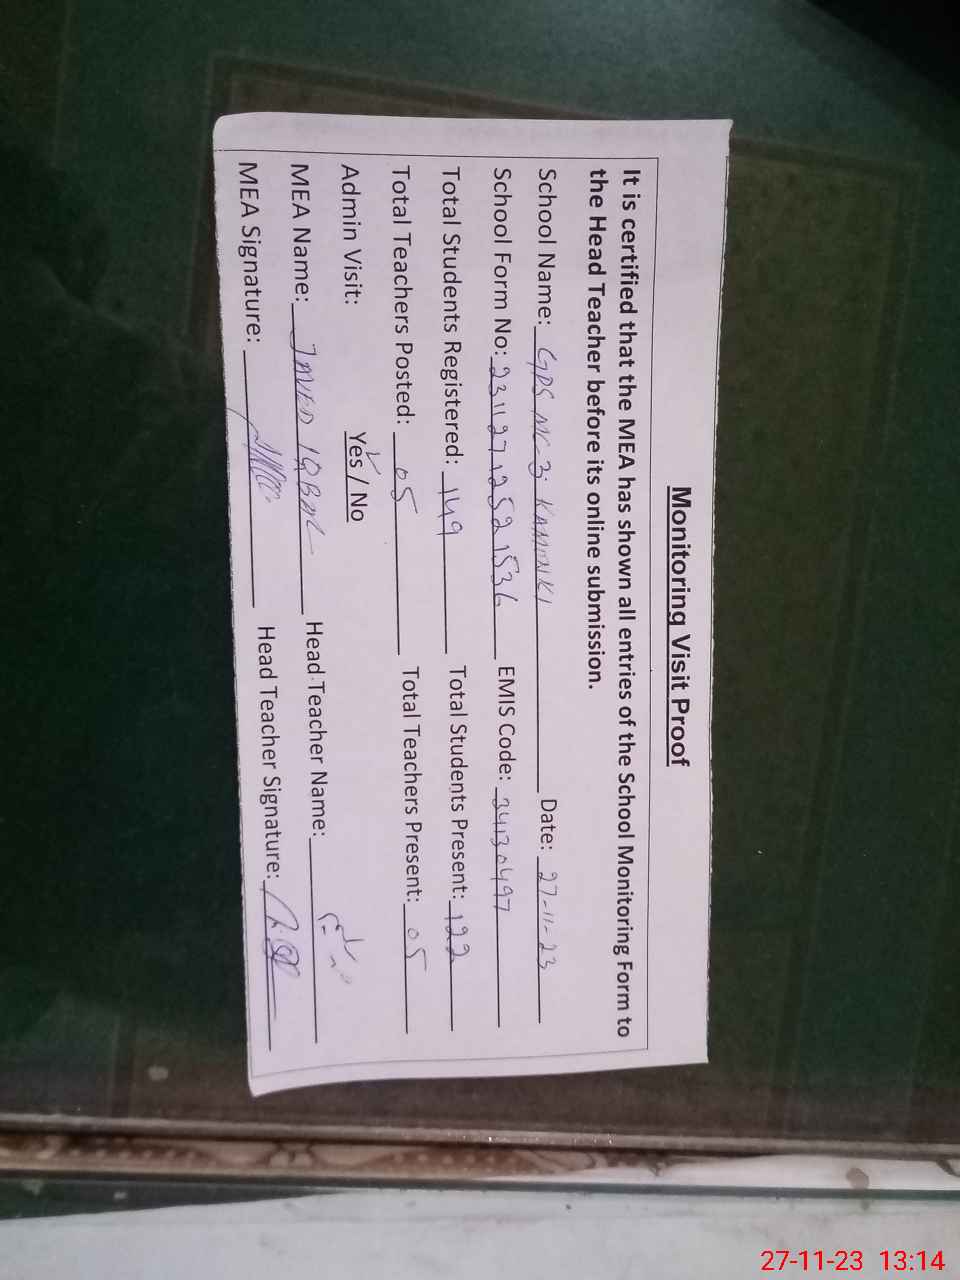 Monitoring Visit Proof
It is certified that the MEA has shown all entries of the School Monitoring Form to
the Head Teacher before its online submission.
School Name: GPS MC-3 KAMONKI Date: 27-11-23
School Form No: 23112712521536 EMIS Code: 34130497
Total Students Registered: 149 Total Students Present: 122
Total Teachers Posted: 05 Total Teachers Present: 05
Admin Visit: Yes / No
MEA Name: JAVED IQBAL Head Teacher Name:
MEA Signature: Head Teacher Signature:
27-11-23 13:14